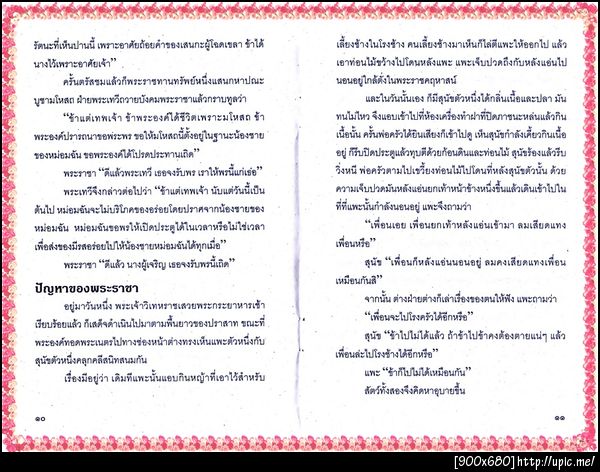 รัตนะที่เห็นปานนี้ เพราะอาศัยถ้อยคำของเสนกะผู้โฉดเขลา ข้าได้
นางไว้เพราะอาศัยเจ้า”
ครั้นตรัสชมแล้วก็พระราชทานทรัพย์หนึ่งแสนกหาปณะ
บูชามโหสถ ฝ่ายพระเทวีถวายบังคมพระราชาแล้วกราบทูลว่า
“ข้าแต่เทพเจ้า ข้าพระองค์ได้ชีวิตเพราะมโหสถ ข้า
พระองค์ปรารถนาขอพระพร ขอให้มโหสถนี้ตั้งอยู่ในฐานะน้องชาย
ของหม่อมฉัน ขอพระองค์ได้โปรดประทานเถิด”
พระราชา “ดีแล้วพระเทวี เธอจงรับพร เราให้พรนี้แก่เธอ”
พระเทวีจึงกล่าวต่อไปว่า “ข้าแต่เทพเจ้า นับแต่วันนี้เป็น
ต้นไป หม่อมฉันจะไม่บริโภคของอร่อยโดยปราศจากน้องชายของ
หม่อมฉัน หม่อมฉันขอพรให้เปิดประตูได้ในเวลาหรือไม่ใช่เวลา
เพื่อส่งของมีรสอร่อยไปให้น้องชายหม่อมฉันได้ทุกเมื่อ”
พระราชา “ดีแล้ว นางผู้เจริญ เธอจงรับพรนี้เถิด”
ปัญหาของพระราชา
อยู่มาวันหนึ่ง พระเจ้าวิเทหราชเสวยพระกระยาหารเช้า
เรียบร้อยแล้ว ก็เสด็จดำเนินไปมาตามพื้นยาวของปราสาท ขณะที่
พระองค์ทอดพระเนตรไปทางช่องหน้าต่างทรงเห็นแพะตัวหนึ่งกับ
สุนัขตัวหนึ่งคลุกคลีสนิทสนมกัน
เรื่องมีอยู่ว่า เดิมทีแพะนั้นแอบกินหญ้าที่เอาไว้สำหรับ
๑๐
เลี้ยงช้างในโรงช้าง คนเลี้ยงช้างมาเห็นก็ไล่ตีแพะให้ออกไป แล้ว
เอาท่อนไม้ขว้างไปโดนหลังแพะ แพะเจ็บปวดถึงกับหลังแอ่นไป
นอนอยู่ใกล้ตั่งในพระราชคฤหาสน์
และในวันนั้นเอง ก็มีสุนัขตัวหนึ่งได้กลิ่นเนื้อและปลา มัน
ทนไม่ไหว จึงแอบเข้าไปที่ห้องเครื่องทำฝาที่ปิดภาชนะหล่นแล้วก็กิน
เนื้อนั้น ครั้นพ่อครัวได้ยินเสียงก็เข้าไปดู เห็นสุนัขกำลังเคี้ยวกินเนื้อ
อยู่ ก็รีบปิดประตูแล้วทุบตีด้วยก้อนดินและท่อนไม้ สุนัขร้องแล้วรีบ
วิ่งหนี พ่อครัวตามไปเขวี้ยงท่อนไม้ไปโดนที่หลังสุนัขตัวนั้น ด้วย
ความเจ็บปวดมันหลังแอ่นยกเท้าหน้าข้างหนึ่งขึ้นแล้วเดินเข้าไปใน
ที่ที่แพะนั้นกำลังนอนอยู่ แพะจึงถามว่า
“เพื่อนเอย เพื่อนยกเท้าหลังแอ่นเข้ามา ลมเสียดแทง
เพื่อนหรือ”
สุนัข “เพื่อนก็หลังแอ่นนอนอยู่ ลมคงเสียดแทงเพื่อน
เหมือนกันสิ”
จากนั้น ต่างฝ่ายต่างก็เล่าเรื่องของตนให้ฟัง แพะถามว่า
“เพื่อนจะไปโรงครัวได้อีกหรือ”
สุนัข “ข้าไปไม่ได้แล้ว ถ้าข้าไปข้าคงต้องตายแน่ๆ แล้ว
เพื่อนล่ะไปโรงช้างได้อีกหรือ”
แพะ “ข้าก็ไปไม่ได้เหมือนกัน”
สัตว์ทั้งสองจึงคิดหาอุบายขึ้น
๑๑
[900x680] http://upic.me/